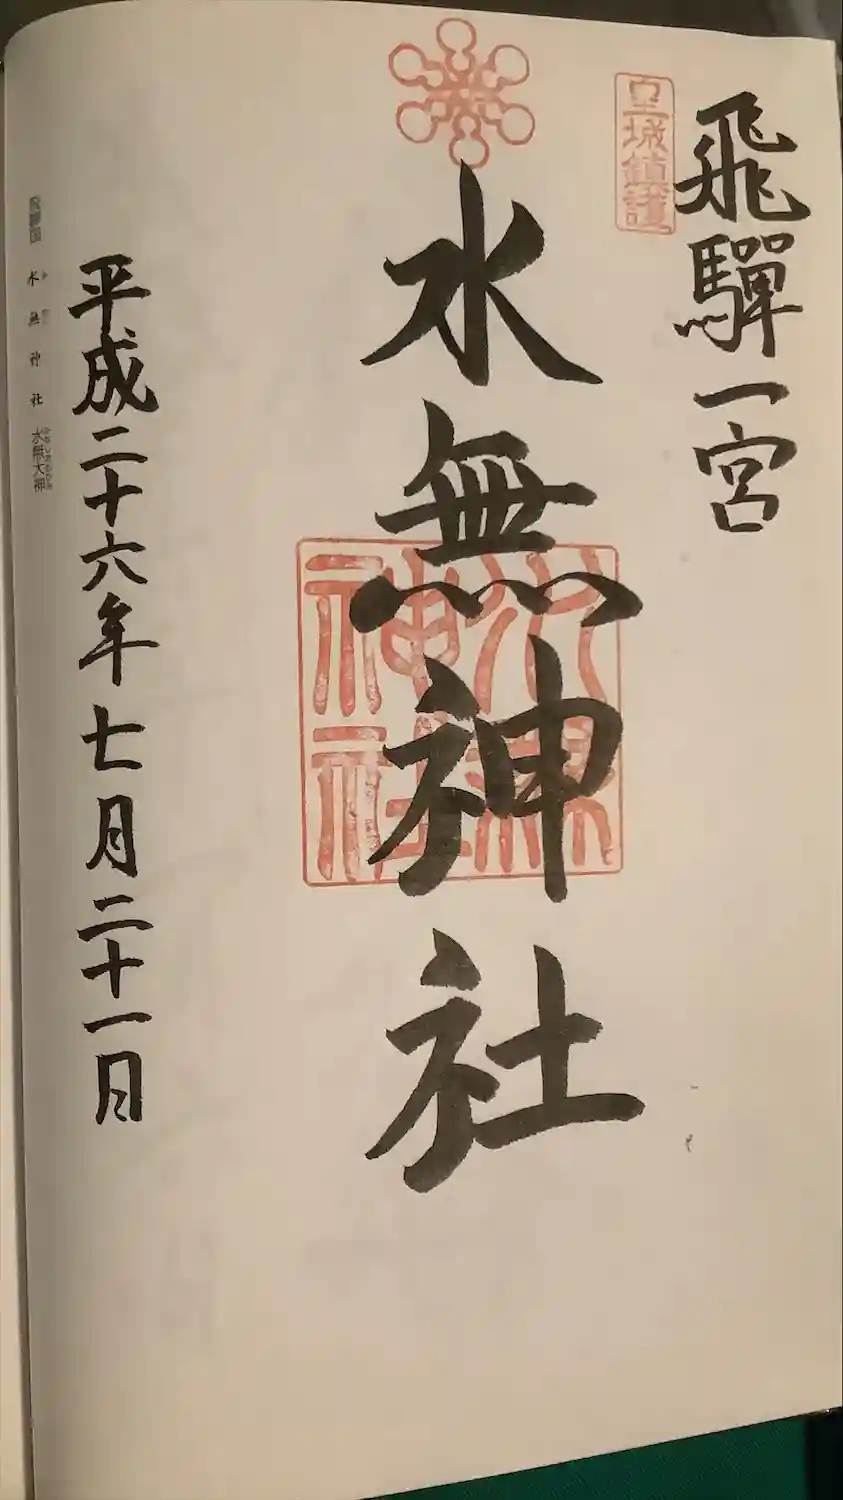 飛驒一宮
皇城鎮護
水無神社
水無神社
平成二十六年七月二十一日
飛驒国 水無神社 水無大神